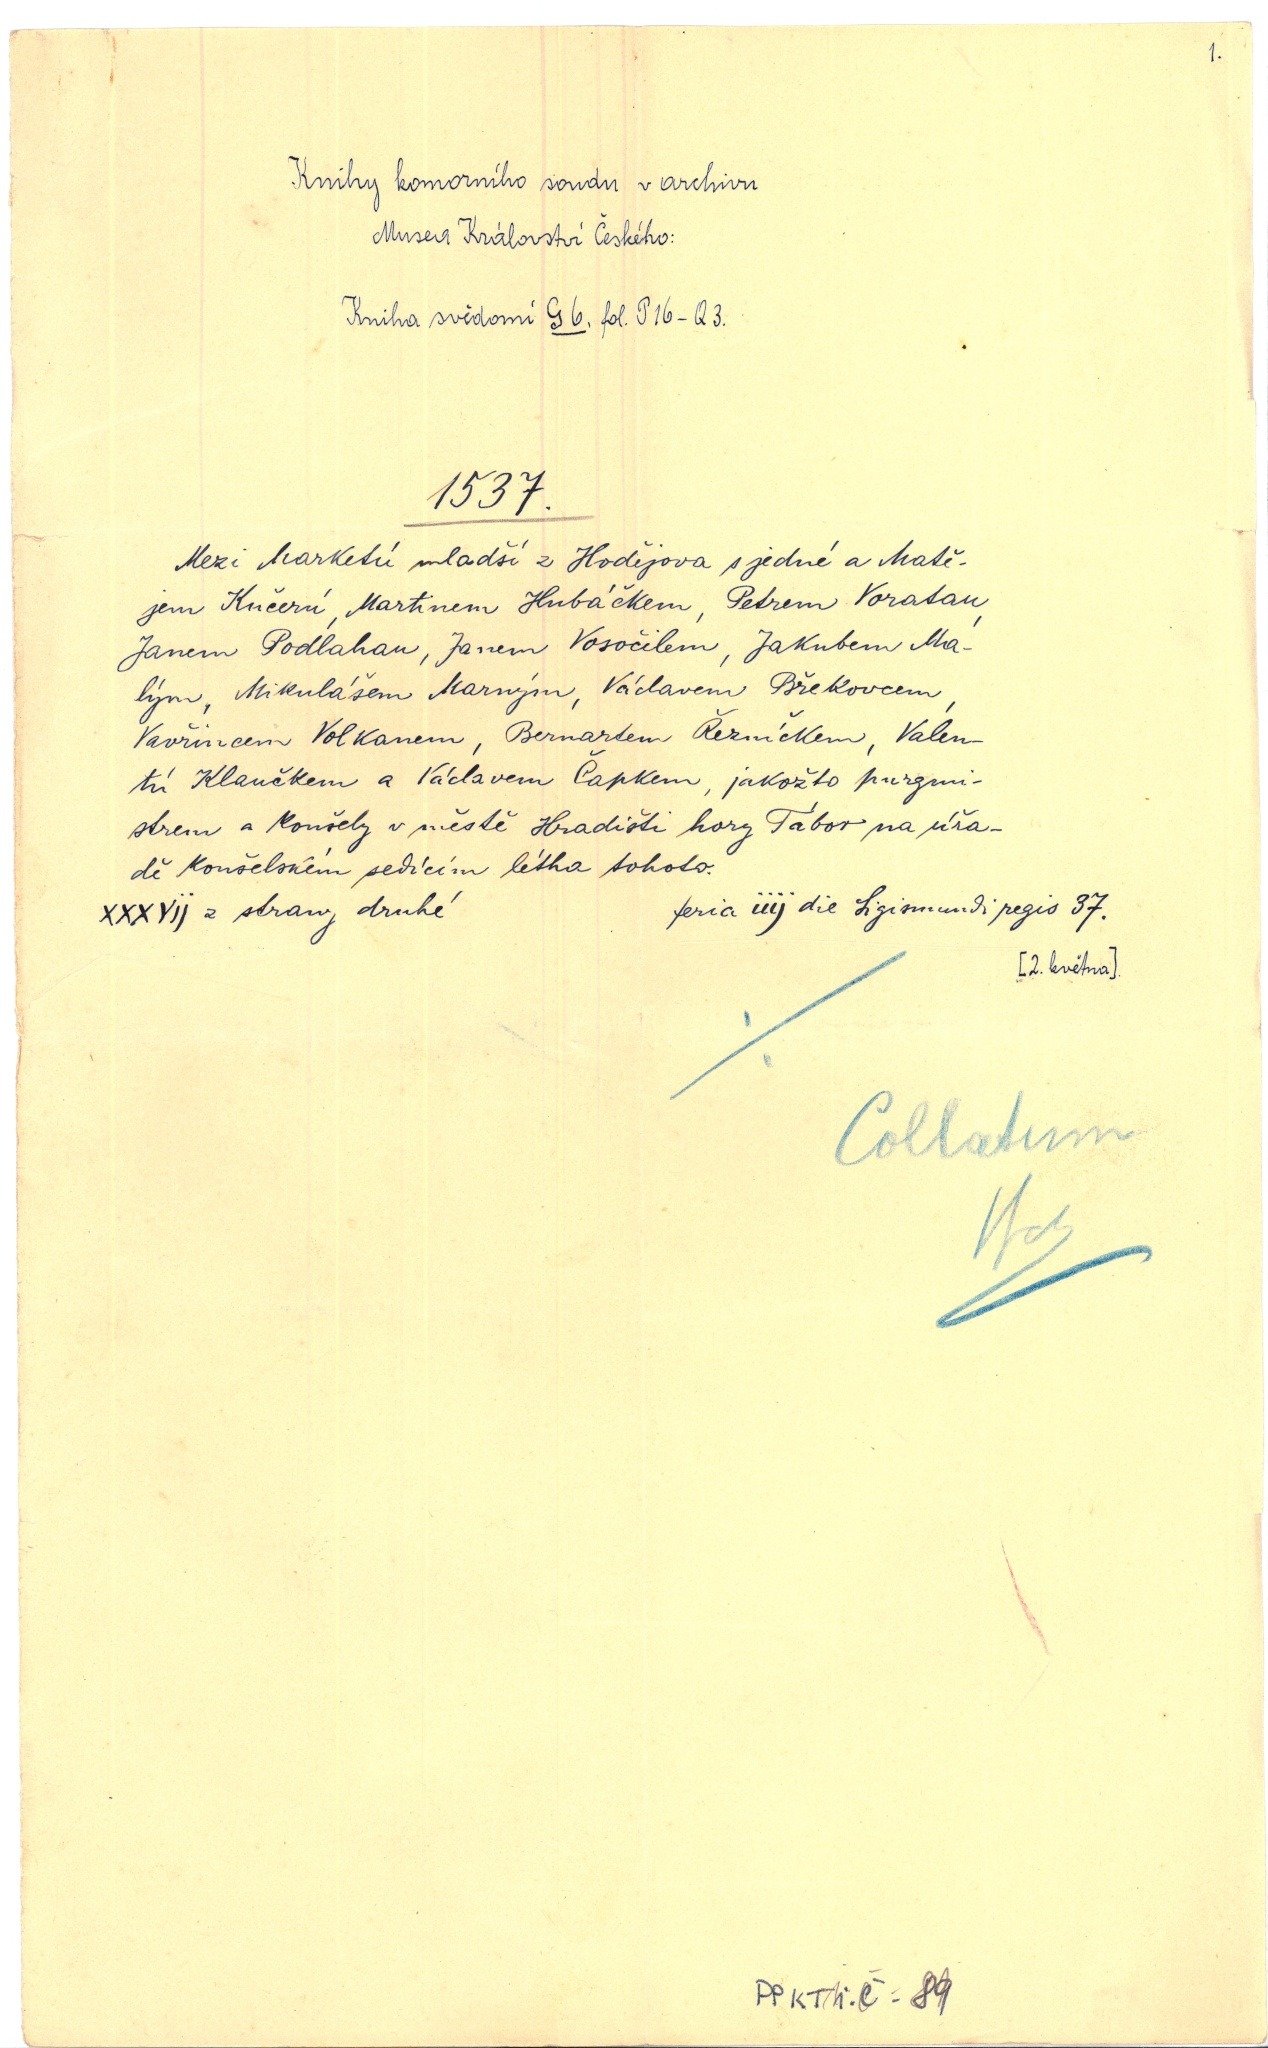 1.
Knihy komorního soudu v archivu
Musea Království Českého:
Kniha svědomí G 6, fol. P 16 - Q 3.
1537.
Mezi Marketú mladší z Hodějova s jedné a Matě-
jem Kučerú, Martinem Hubáčkem, Petrem Voratau,
Janem Podlahau, Janem Vosočilem, Jakubem Ma-
lým, Mikulášem Marným, Václavem Břekovcem,
Vavřincem Volkanem, Bernartem Řezníčkem, Valen-
tú Klaučkem a Václavem Čapkem, jakožto purgmi-
strem a konšely v městě Hradišti hory Tábor na úřa-
dě konšelském sedícím létha tohoto.
XXXVij z strany druhé feria iiij die Sigismundi regis 37.
[2. května].
Collatum
PPKT/i.č = 89